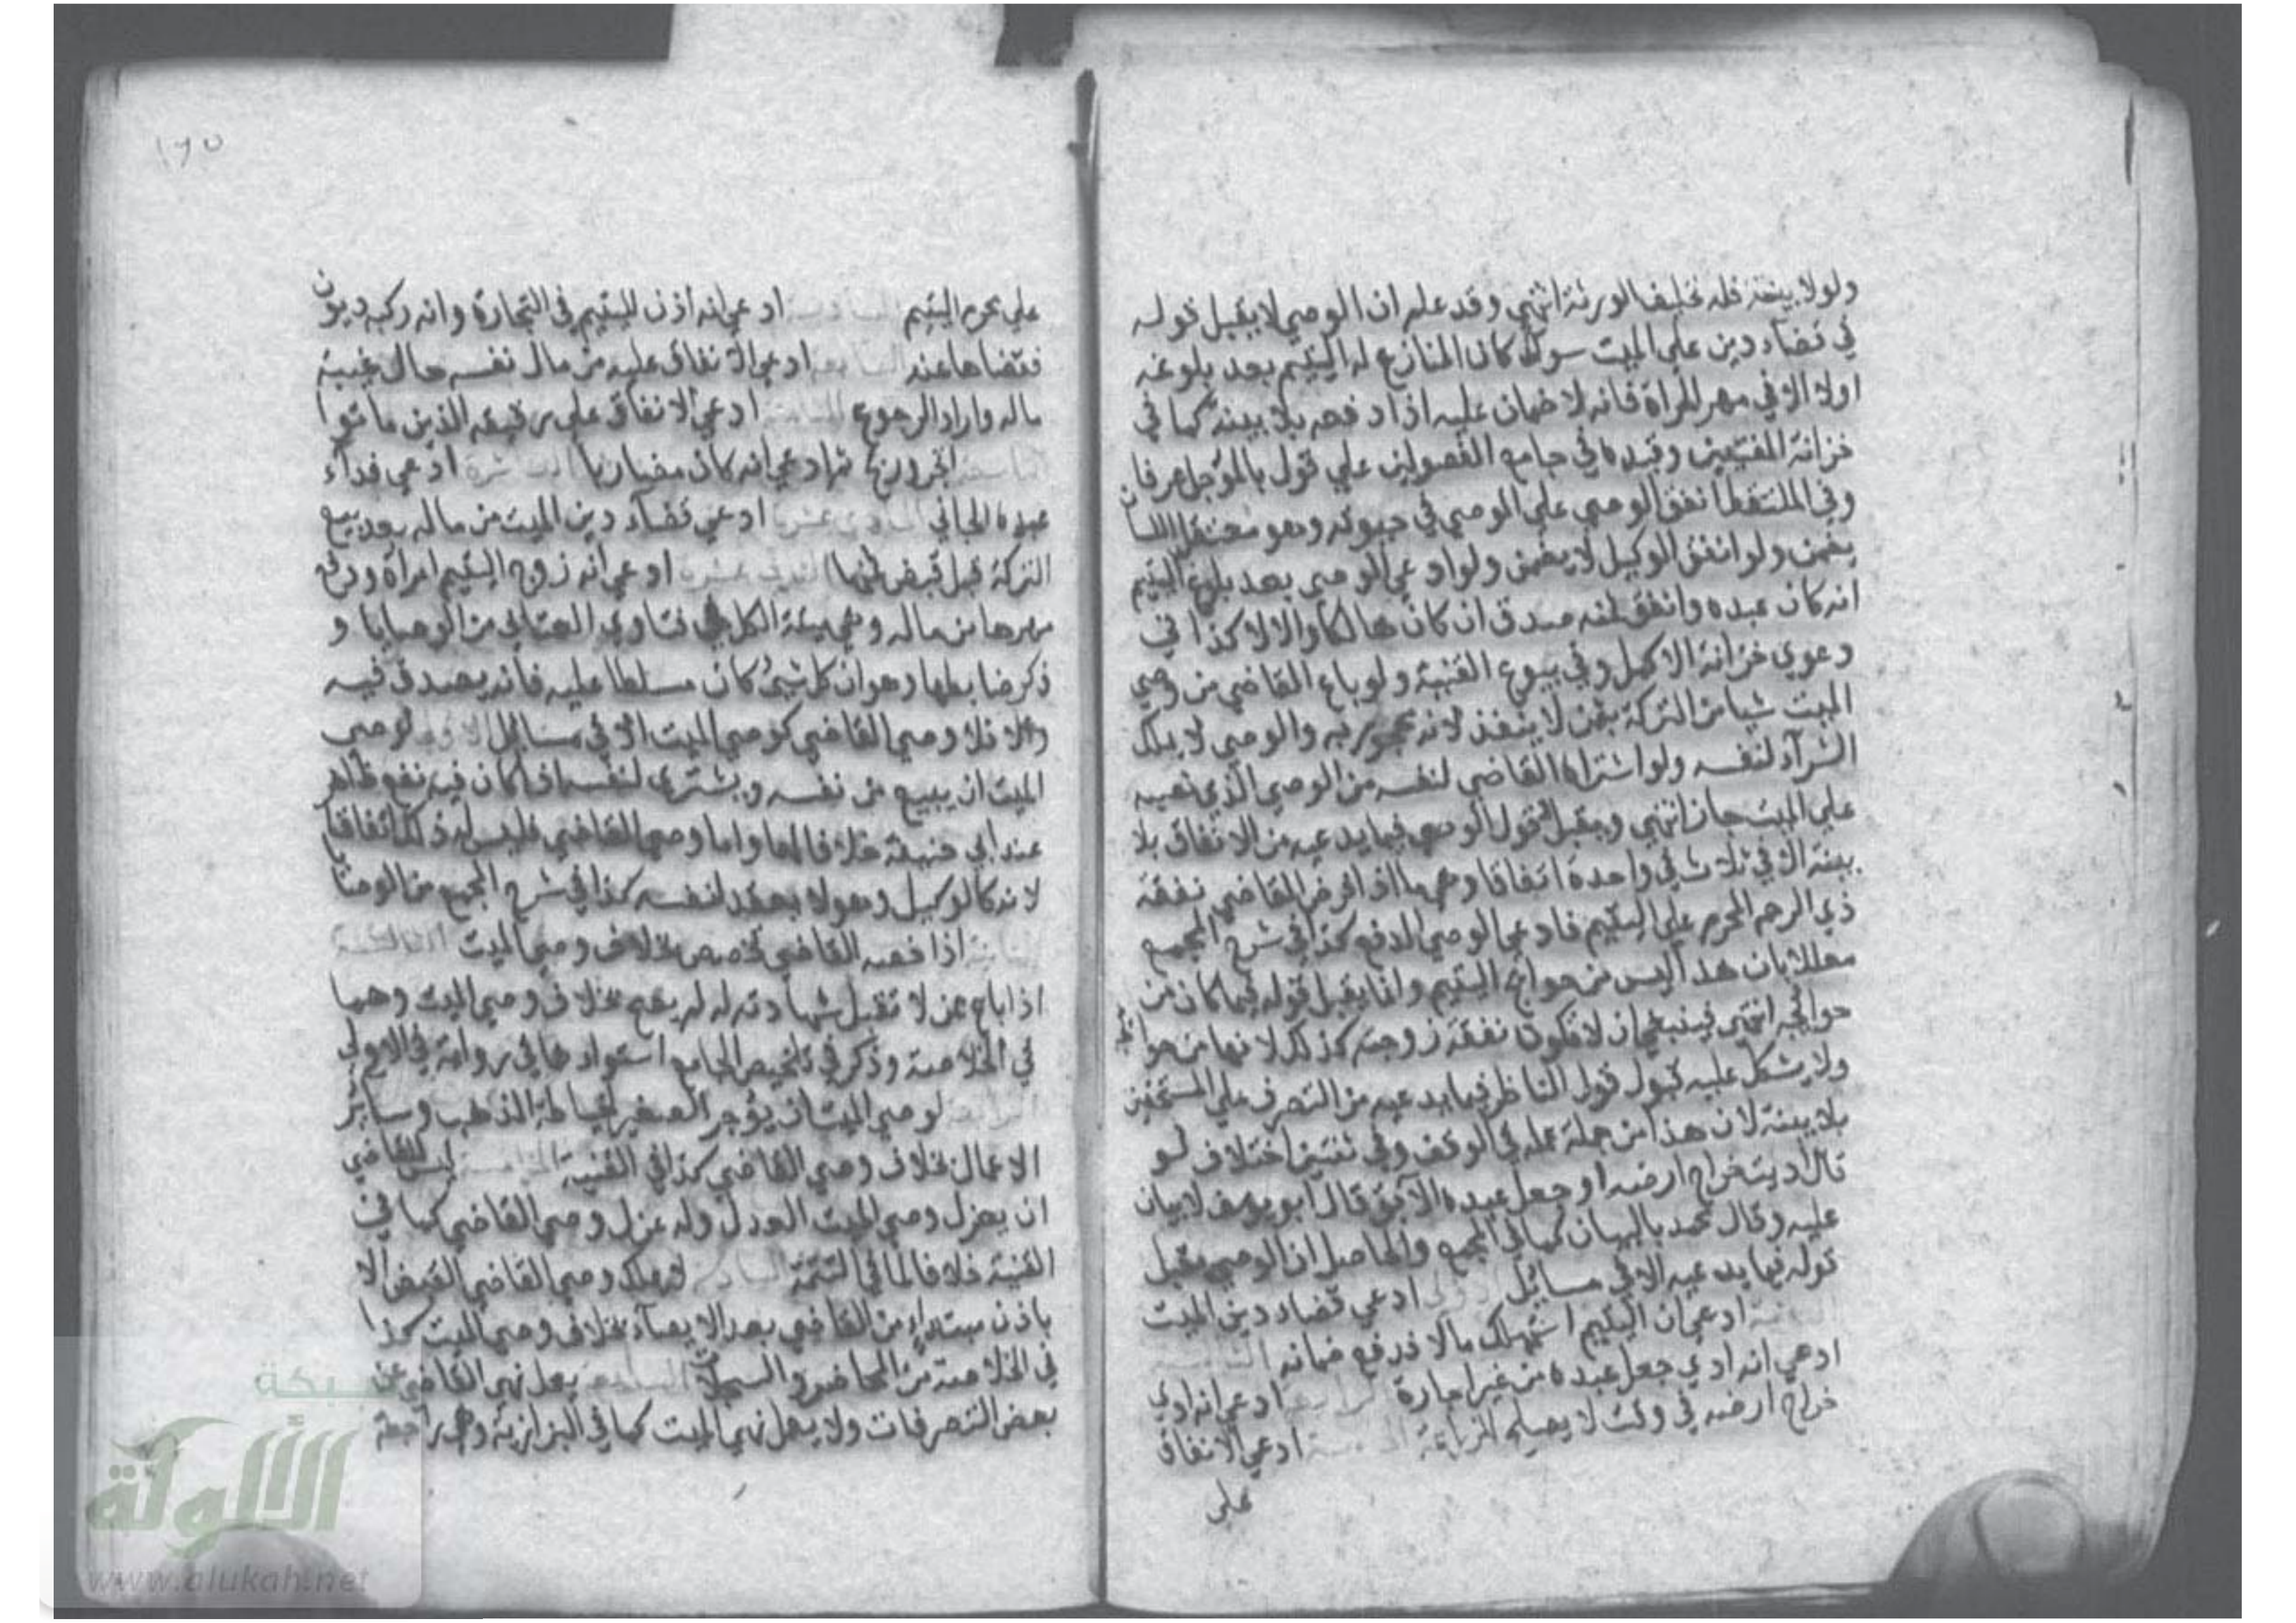 ولولا بينة فله تحليف الورثة انتهي وقد علم ان الوصي لا يقبل قوله
في قضاء دين علي الميت سواء كان المنازع له اليتيم بعد بلوغه
اولا الا في مهر المراة فانه لا ضمان عليه اذا دفعه بلا بينة كما في
خزانة المفتيين وقيده في جامع الفصولين علي قول بالمؤجل عرفا
وفي الملتقط انفق الوصي علي الموصي في حيوته وهو معتقل اللسان
يضمن ولو انفق الوكيل لا يضمن ولو ادعي الوصي بعد بلوغ اليتيم
انه كان عبده وانفق ثمنه صدق ان كان هالكا والا لا كذا في
دعوي خزانة الاكمل وفي بيوع القنية ولو باع القاضي من وصي
الميت شيا من التركة بثمن لا ينفذ لانه محجور به والوصي لا يملك
الشرآء لنفسه ولو اشتراه القاضي لنفسه من الوصي الذي نصبه
علي الميت جاز انتهي ويقبل قول الوصي فيما يدعيه من الانفاق بلا
بينة الا في ثلاث في واحدة اتفاقا وهي ما اذا فرض القاضي نفقة
ذي الرحم المحرم علي اليتيم فادعي الوصي الدفع كذا في شرح المجمع
معللا بان هذا ليس من حوائج اليتيم وانما يقبل قوله فيما كان من
حوائجه انتهي فينبغي ان لا تكون نفقة زوجته كذلك لانها من حوائجه
ولا يشكل عليه قبول قول الناظر فيما يدعيه من التصرف علي المستحقين
بلا بينة لان هذا من جملة عمله في الوقف وفي ثنتين اختلاف لو
قال اديت خراج ارضه او جعل عبده الآبق قال ابو يوسف لا بيان
عليه وقال محمد بالبيان كما في المجمع والحاصل ان الوصي يقبل
قوله فيما يدعيه الا في مسائل الاولي ادعي قضاء دين الميت
الثانية ادعي ان اليتيم استهلك مالا فدفع ضمانه الثالثة
ادعي انه ادي جعل عبده من غير اجارة الرابعة ادعي انه ادي
خراج ارضه في وقت لا يصلح للزراعة الخامسة ادعي الانفاق
علي
١٢٥
علي محرم اليتيم السادسة ادعي انه اذن لليتيم في التجارة وانه ركبه ديون
فقضاها عنه السابعة ادعي الانفاق عليه من مال نفسه حال غيبة
ماله واراد الرجوع الثامنة ادعي الانفاق علي رقيقه الذين ماتوا
التاسعة اتجر وربح ثم ادعي انه كان مضاربا العاشرة ادعي فدآء
عبده الجاني الحادي عشر ادعي قضآء دين الميت من ماله بعد بيع
التركة قبل قبض ثمنها الثانية عشر ادعي انه زوج اليتيم امراة ودفع
مهرها من ماله وهي ميتة الكل في فتاوي العتابي من الوصايا و
ذكر ضابطها وهو ان كل شئ كان مسلطا عليه فانه يصدق فيه
والا فلا وصي القاضي كوصي الميت الا في مسائل الاولي لوصي
الميت ان يبيع من نفسه ويشتري لنفسه اذا كان فيه نفع ظاهر
عند ابي حنيفة خلافا لهما واما وصي القاضي فليس له ذلك اتفاقا
لانه كالوكيل وهو لا يعقد لنفسه كذا في شرح المجمع من الوصايا
الثانية اذا خصه القاضي تخصص بخلاف وصي الميت الثالثة
اذا باع ممن لا تقبل شهادته له لم يصح بخلاف وصي الميت وهما
في الخلاصة وذكر في تلخيص الجامع استوادهما في رواية في الاولي
الرابعة لوصي الميت ان يؤجر الصغير لخياطة الذهب وسائر
الاعمال بخلاف وصي القاضي كذا في القنية الخامسة ليس للقاضي
ان يعزل وصي الميت العدل وله عزل وصي القاضي كما في
القنية خلافا لما في التتمة السادسة لا يملك وصي القاضي القبض الا
باذن مبتداء من القاضي بعد الايصآء بخلاف وصي الميت كذا
في الخلاصة من المحاضر والسجلات السابعة يعمل نهي القاضي عن
بعض التصرفات ولا يعمل نهي الميت كما في البزازية وهي راجعة
شبكة
الألوكة
www.alukah.net